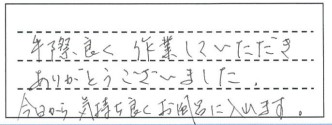 手際良く作業していただき
ありがとうございました。
今日から気持ち良くお風呂に入れます。